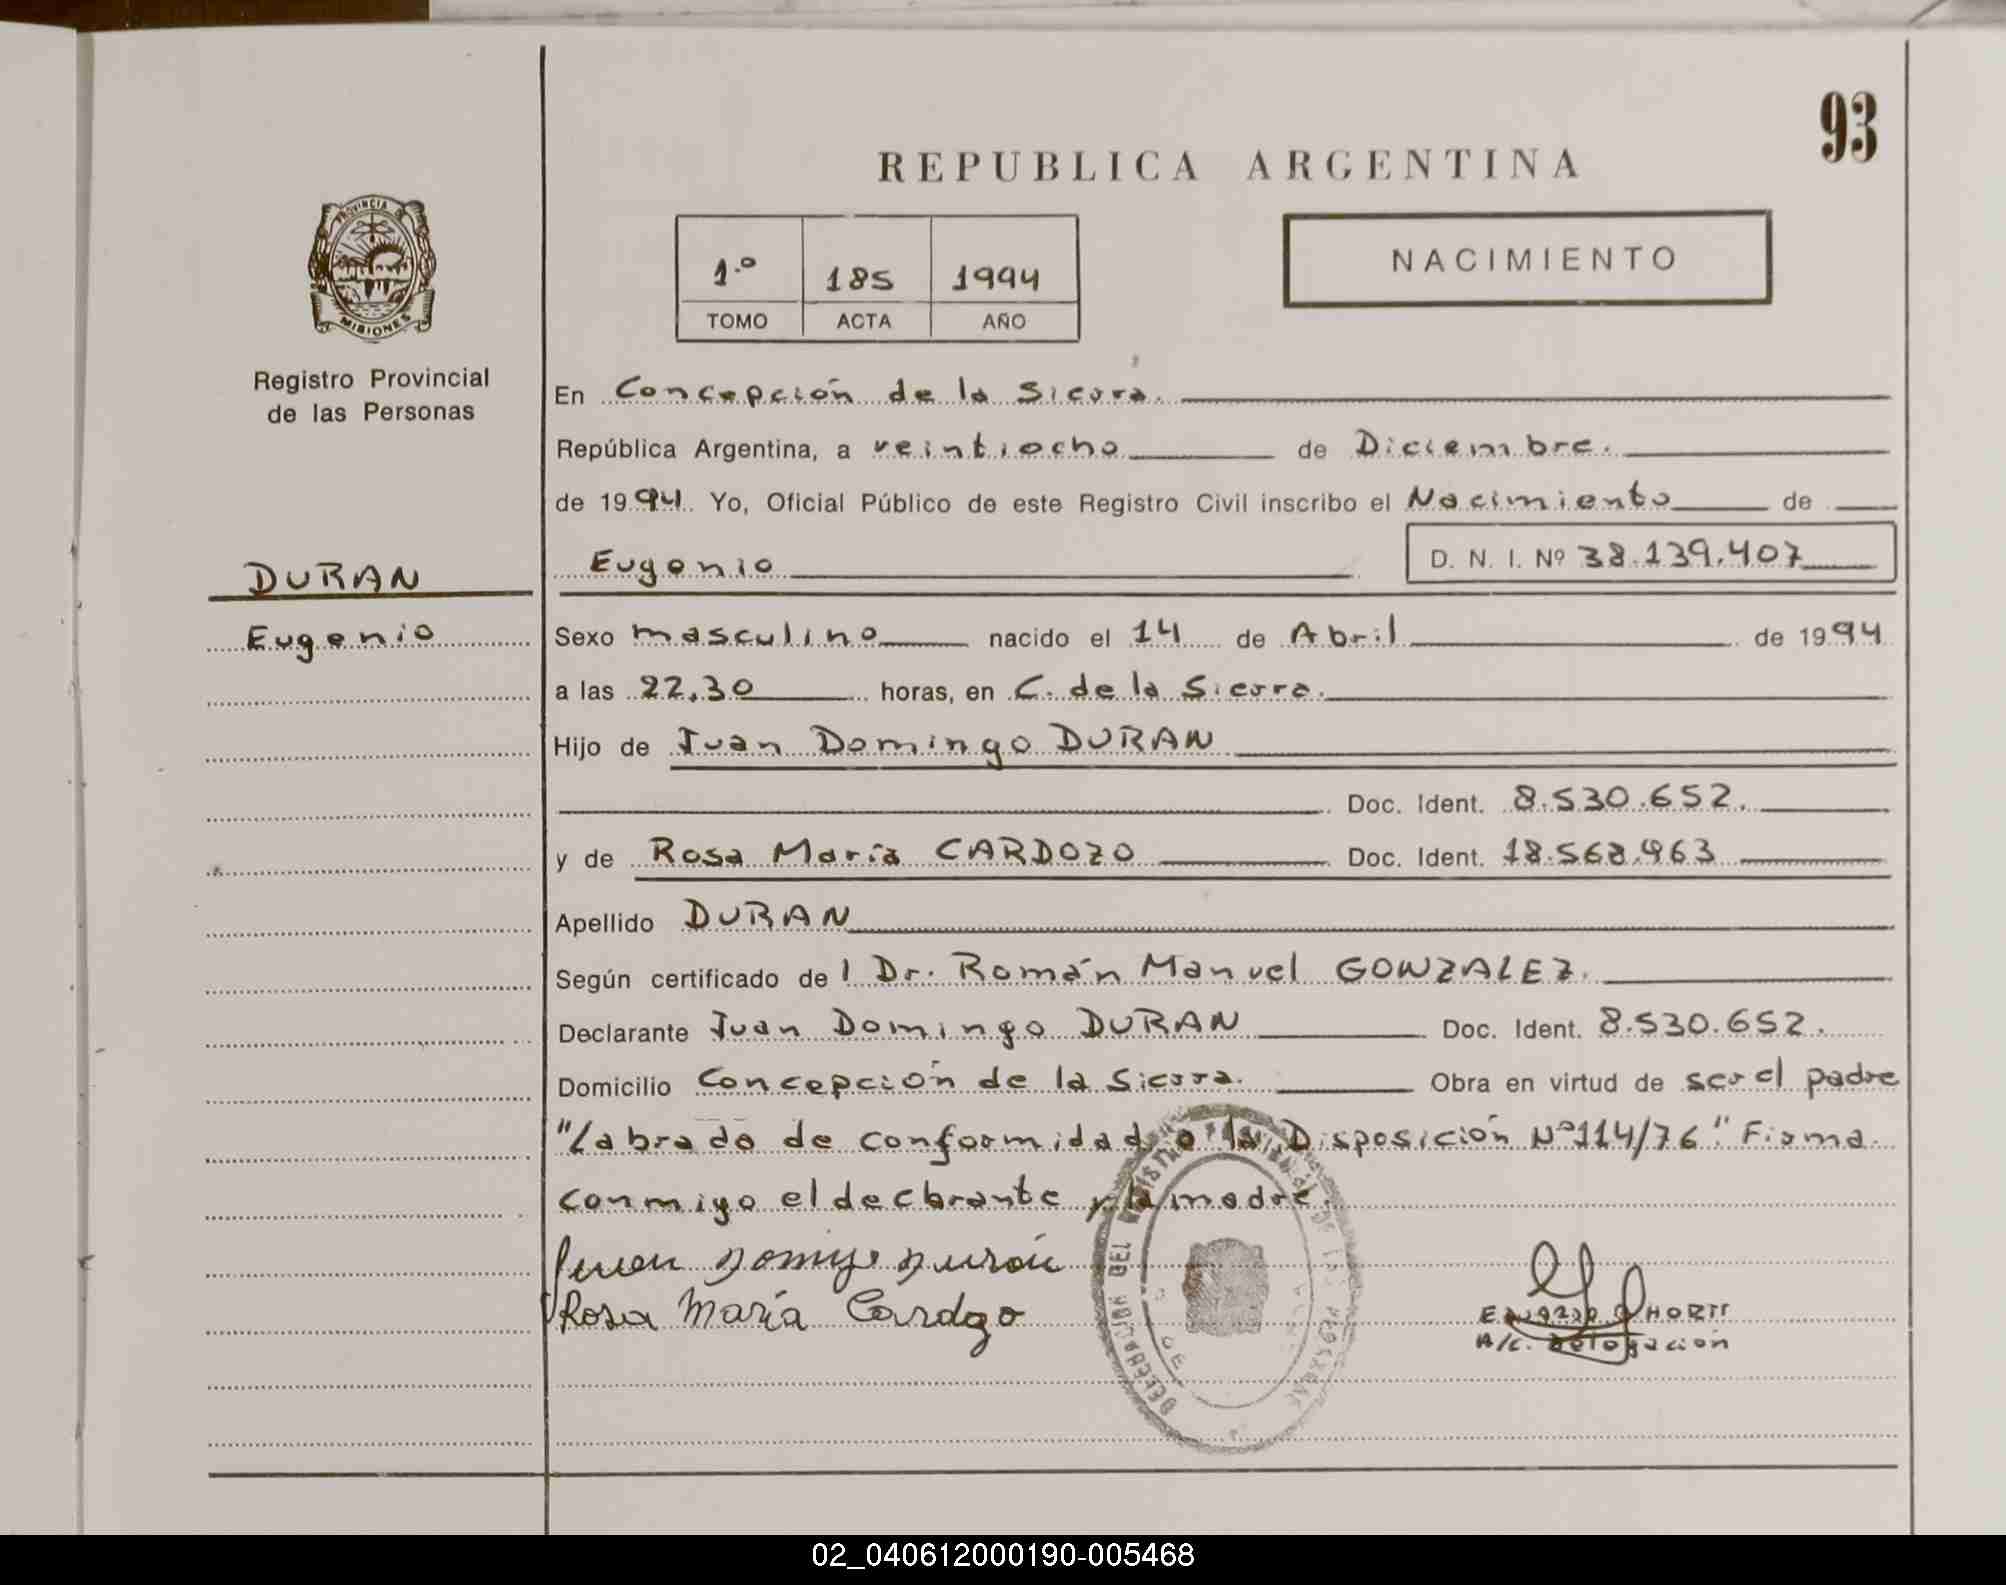 93
REPUBLICA ARGENTINA
PROVINCIA DE
MISIONES
1.º 185 1994
TOMO ACTA AÑO
NACIMIENTO
Registro Provincial
de las Personas
En Concepción de la Sierra.
República Argentina, a veintiocho de Diciembre.
de 1994. Yo, Oficial Público de este Registro Civil inscribo el Nacimiento de
Eugenio D. N. I. Nº 38.139.407
DURAN
Eugenio
Sexo masculino nacido el 14 de Abril de 1994
a las 22.30 horas, en C. de la Sierra.
Hijo de Juan Domingo DURAN
Doc. Ident. 8.530.652.
y de Rosa María CARDOZO Doc. Ident. 18.568.963
Apellido DURAN
Según certificado de l Dr. Román Manuel GONZALEZ.
Declarante Juan Domingo DURAN Doc. Ident. 8.530.652.
Domicilio Concepción de la Sierra. Obra en virtud de ser el padre
"Labrado de conformidad a la Disposición Nº 114/76" Firma
conmigo el declarante y la madre.
Juan Domingo Durán
Rosa María Cardozo
DELEGACION DEL REGISTRO PROVINCIAL DE LAS PERSONAS
A/C. Delegación
02_040612000190-005468